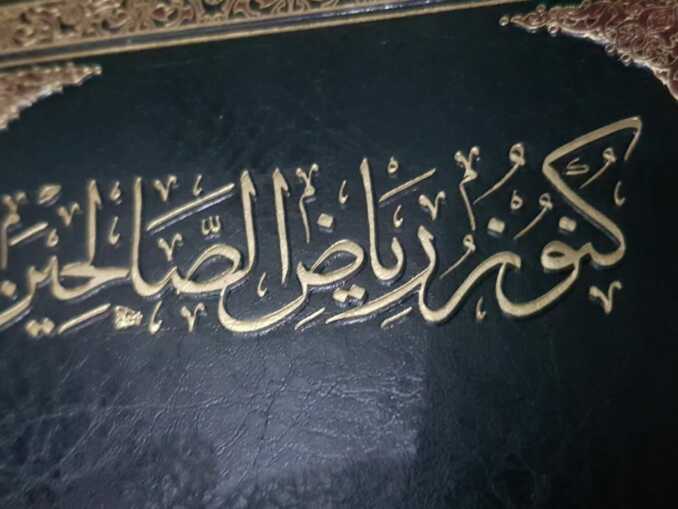 كُنُوزُ رِيَاضِ الصَّالِحِيْنَ